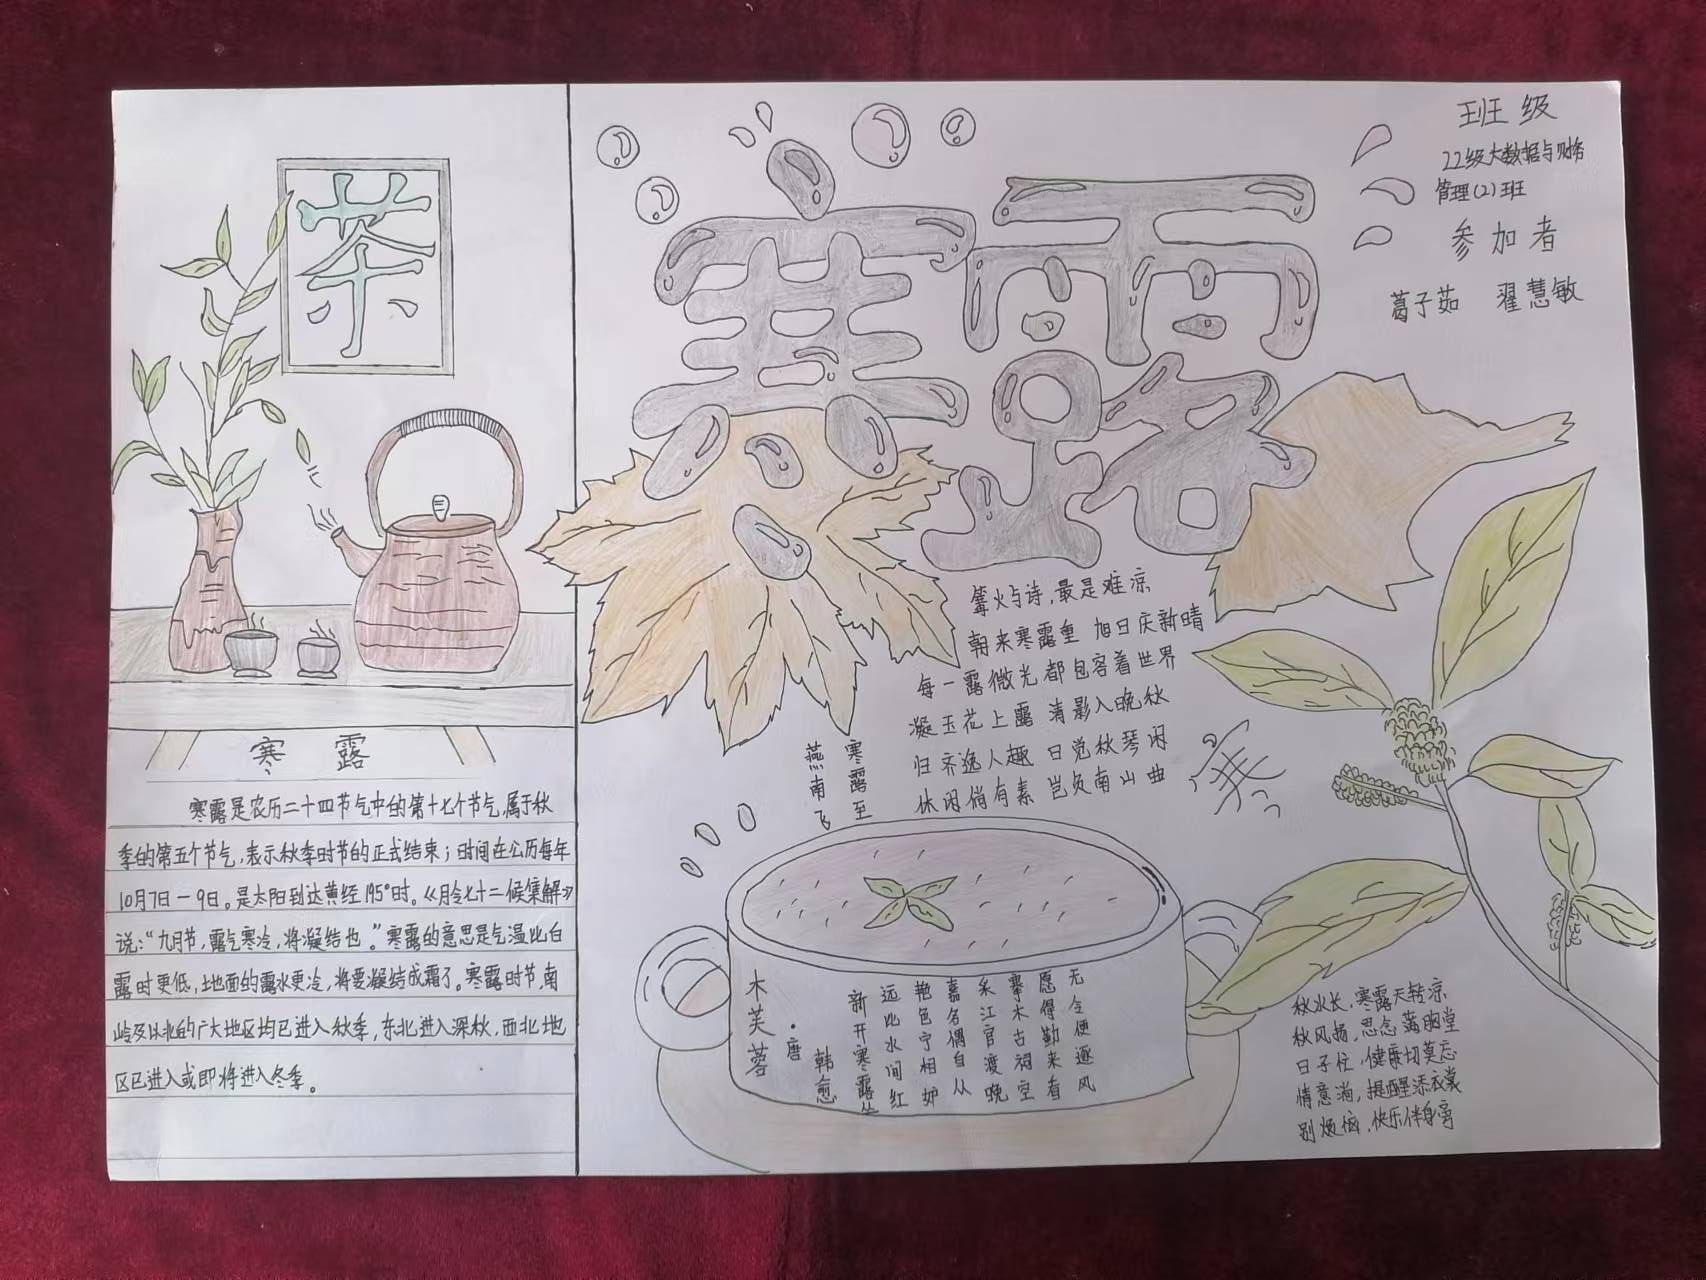 茶
寒露
寒露是农历二十四节气中的第十七个节气,属于秋
季的第五个节气,表示秋季时节的正式结束;时间在公历每年
10月7日-9日。是太阳到达黄经195°时。《月令七十二候集解》
说:“九月节,露气寒冷,将凝结也。”寒露的意思是气温比白
露时更低,地面的露水更冷,将要凝结成霜了。寒露时节,南
岭及以北的广大地区均已进入秋季,东北进入深秋,西北地
区已进入或即将进入冬季。
寒露
班级
22级大数据与财务
管理(2)班
参加者
葛子茹 翟慧敏
篝火与诗,最是难凉
朝来寒露重 旭日庆新晴
每一露微光都包容着世界
凝玉花上露 清影入晚秋
归齐逸人趣 日觉秋琴闲
休闲倘有素 岂负南山曲
寒露至
燕南飞
木芙蓉
·唐 韩愈
新开寒露丛
远比水间红
艳色宁相妒
嘉名偶自从
采江官渡晚
搴木古祠空
愿得勤来看
无令便逐风
秋水长,寒露天转凉
秋风扬,思念满胸堂
日子忙,健康切莫忘
情意淌,提醒添衣裳
别烦恼,快乐伴身旁